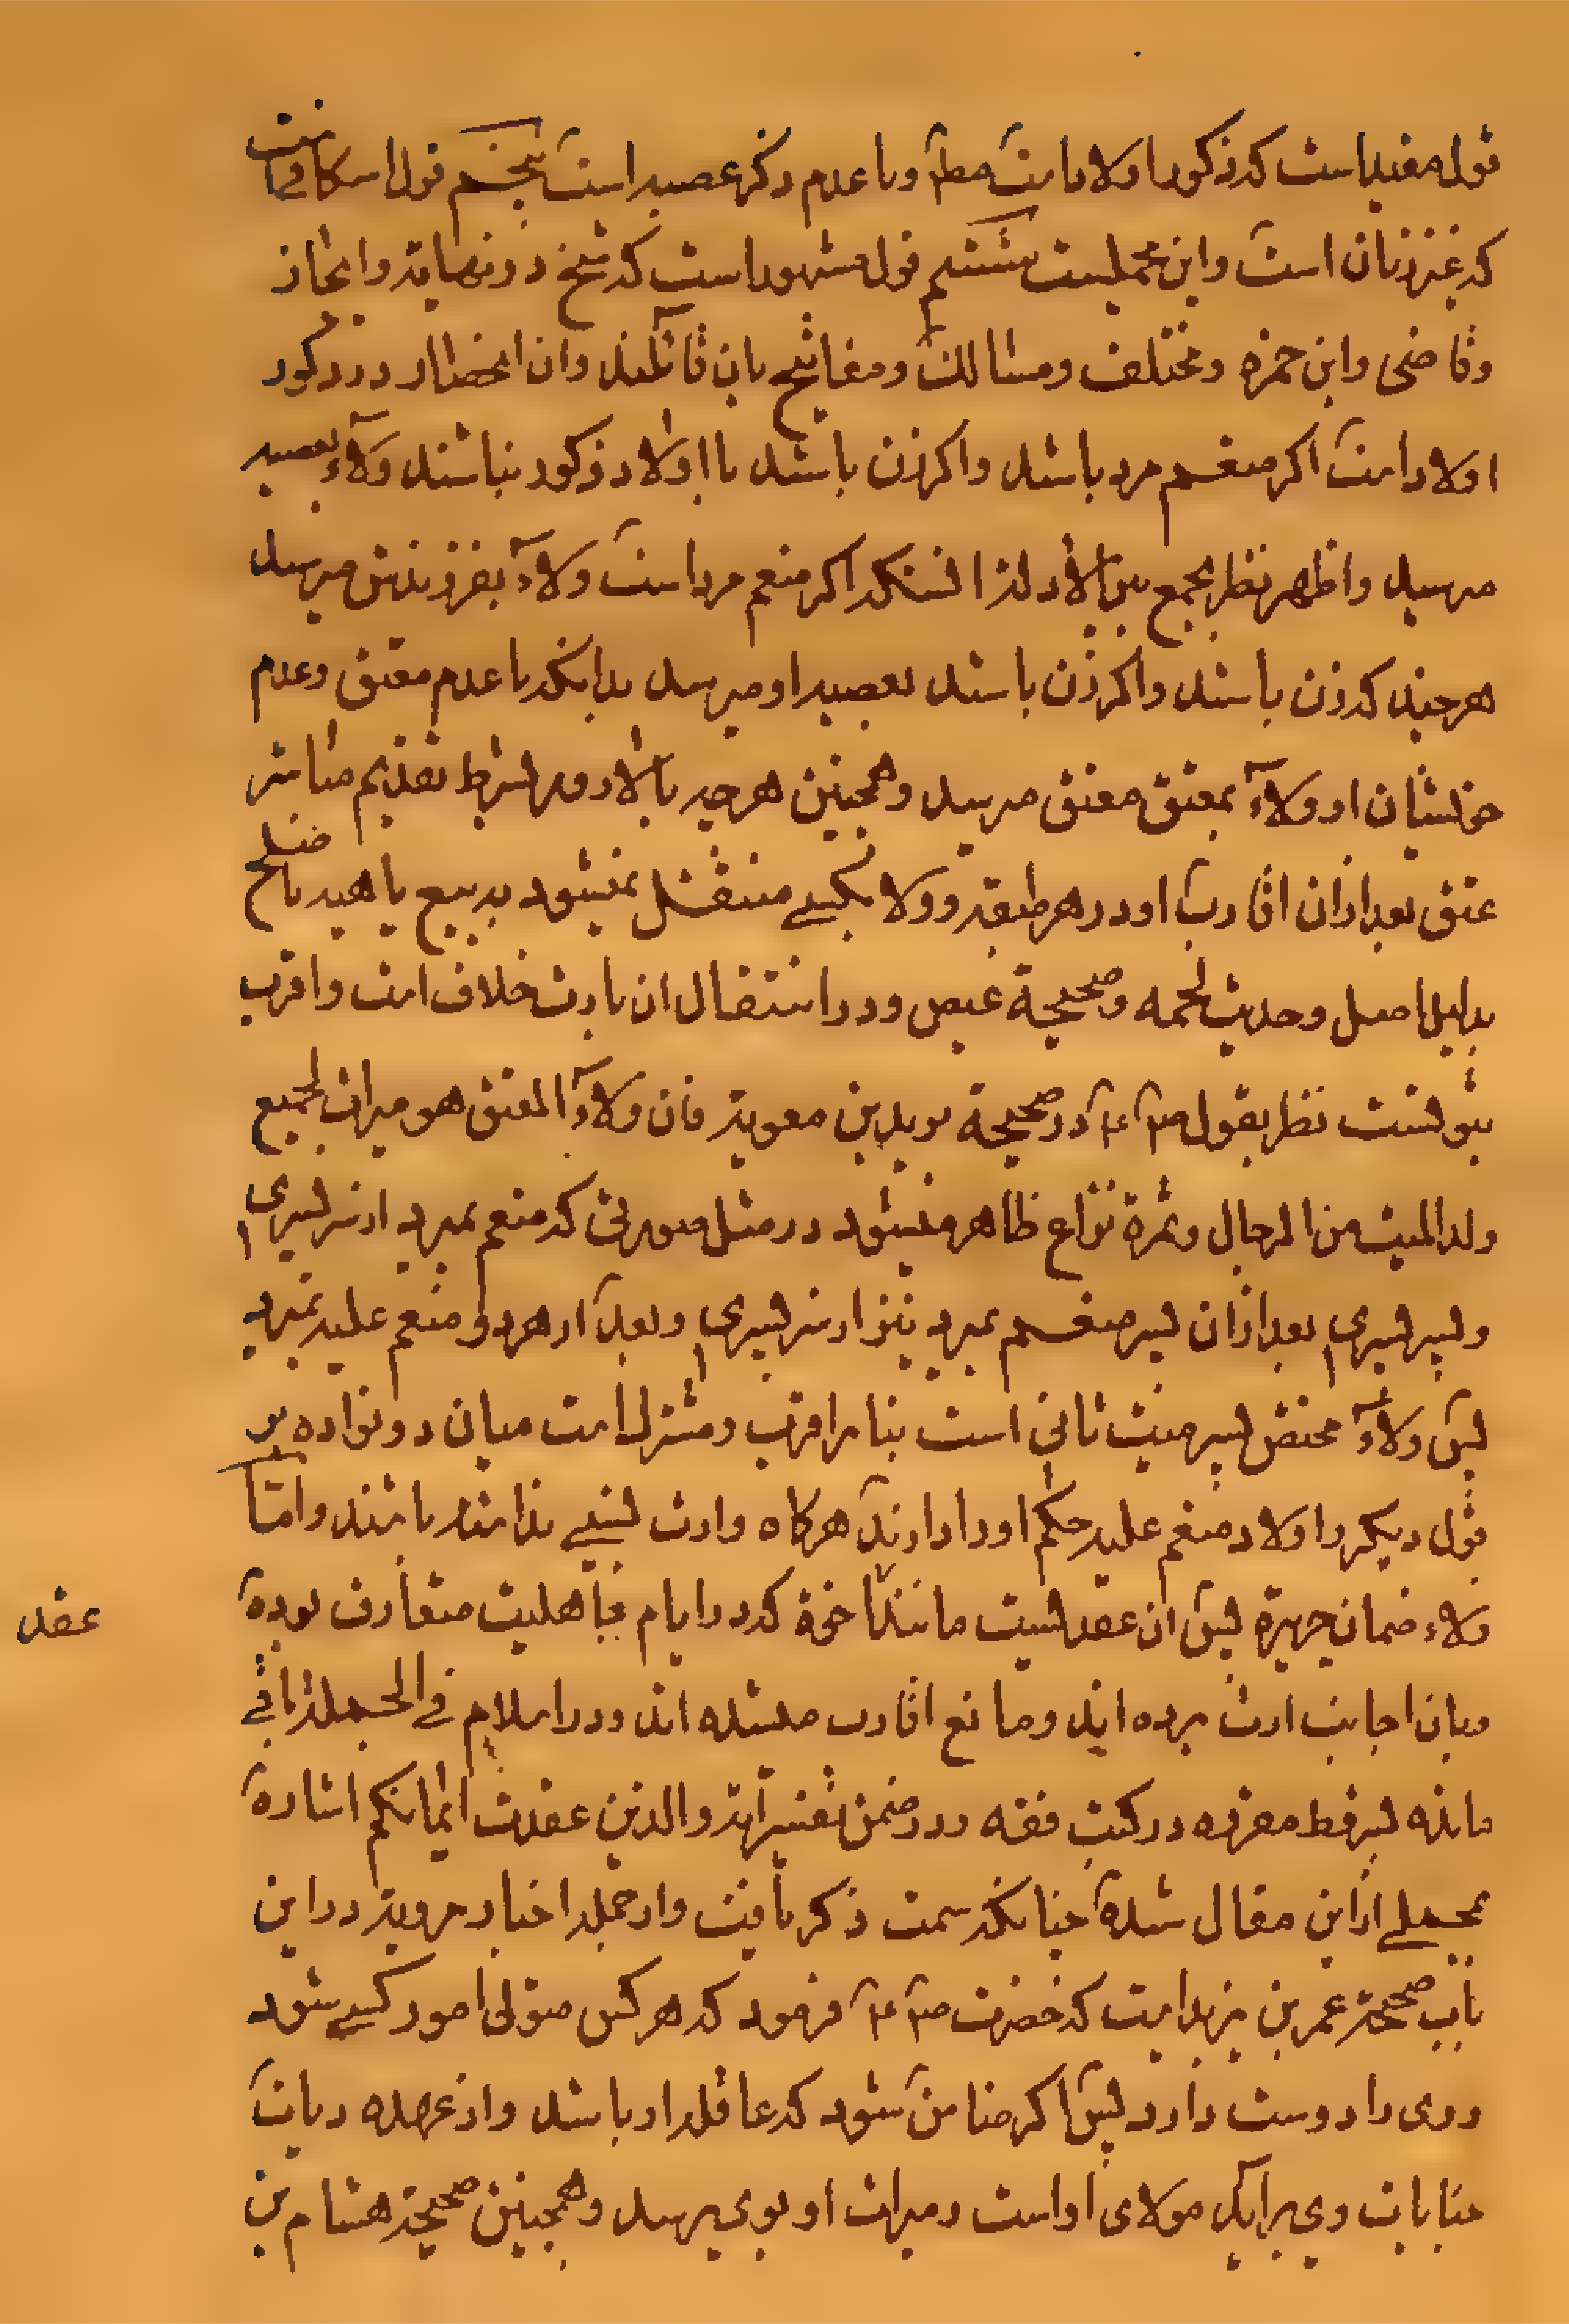 قول مفید است که ذکور اولاد است مطلقا و با عدم ذکر عصبه است پنجم قول اسکافیست
که غیر زنان است و این مجملیست ششم قول مشهور است که شیخ در نهایه و ایجاز
وقاضی وابن حمزه و مختلف ومسالک ومفاتیح بان قائلند وان انحصار در ذکور
اولاد است اکر منعم مرد باشد واکر زن باشد با اولاد ذکور نباشند ولاء بعصبه
میرسد واظهر نظر بجمع بین الادله انستکه اکر منعم مرد است ولاء بفرزندش میرسد
هرچند که زن باشد واکر زن باشد بعصبه او میرسد بدانکه با عدم معتق وعدم
خویشان او ولاء بمعتق معتق میرسد وهمچنین هرچه بالا رود بشرط تقدیم مباشر
عتق بعد ازان اقارب او در هر طبقه و ولا بکسے منتقل نمیشود به بیع یا هبه یا صلح
بدلیل اصل وحدیث لحمه وصحیحة عیص ودر انتقال ان بارث خلاف است واقرب
ثبوتست نظر بقول در صحیحة برید بن معویة فان ولاء المعتق هو میراث لجمیع
ولد المیت من الرجال وثمرة نزاع ظاهر میشود در مثل صورتی که منعم بمیرد از سر پسری
وپسر پسری بعد ازان پسر منعم بمیرد نیز از سر پسری وبعد از هر دو منعم علیه بمیرد
پس ولاء مختص پسر میت ثانی است بنا بر اقرب ومشترک است میان دو نواده بر
قول دیکر و اولاد منعم علیه حکم او را دارند هرکاه وارث نسبے نداشته باشند واما
ولاء ضمان جریرة پس ان عقدیست مانند اخوة که در ایام جاهلیت متعارف بوده
عقد
میان اجانب ارث میبرده اند ومانع اقارب میشده اند ودر اسلام فے الجمله باقے
مانده بشروط مقرره در کتب فقه ودر ضمن تفسیر آیة والذین عقدت ایمانکم اشارة
مجملے ازاین مقال شده چنانکه سمت ذکر یافت واز جمله اخبار مرویة دراین
باب صحیحة عمر بن یزید است که حضرت فرمود که هر کس متولی امور کسے شود
ووی را دوست دارد پس اکر ضامن شود که عاقله او باشد واز عهده دیات
جنایات وی برآید مولای او است ومیراث او بوی میرسد وهمچنین صحیحة هشام بن